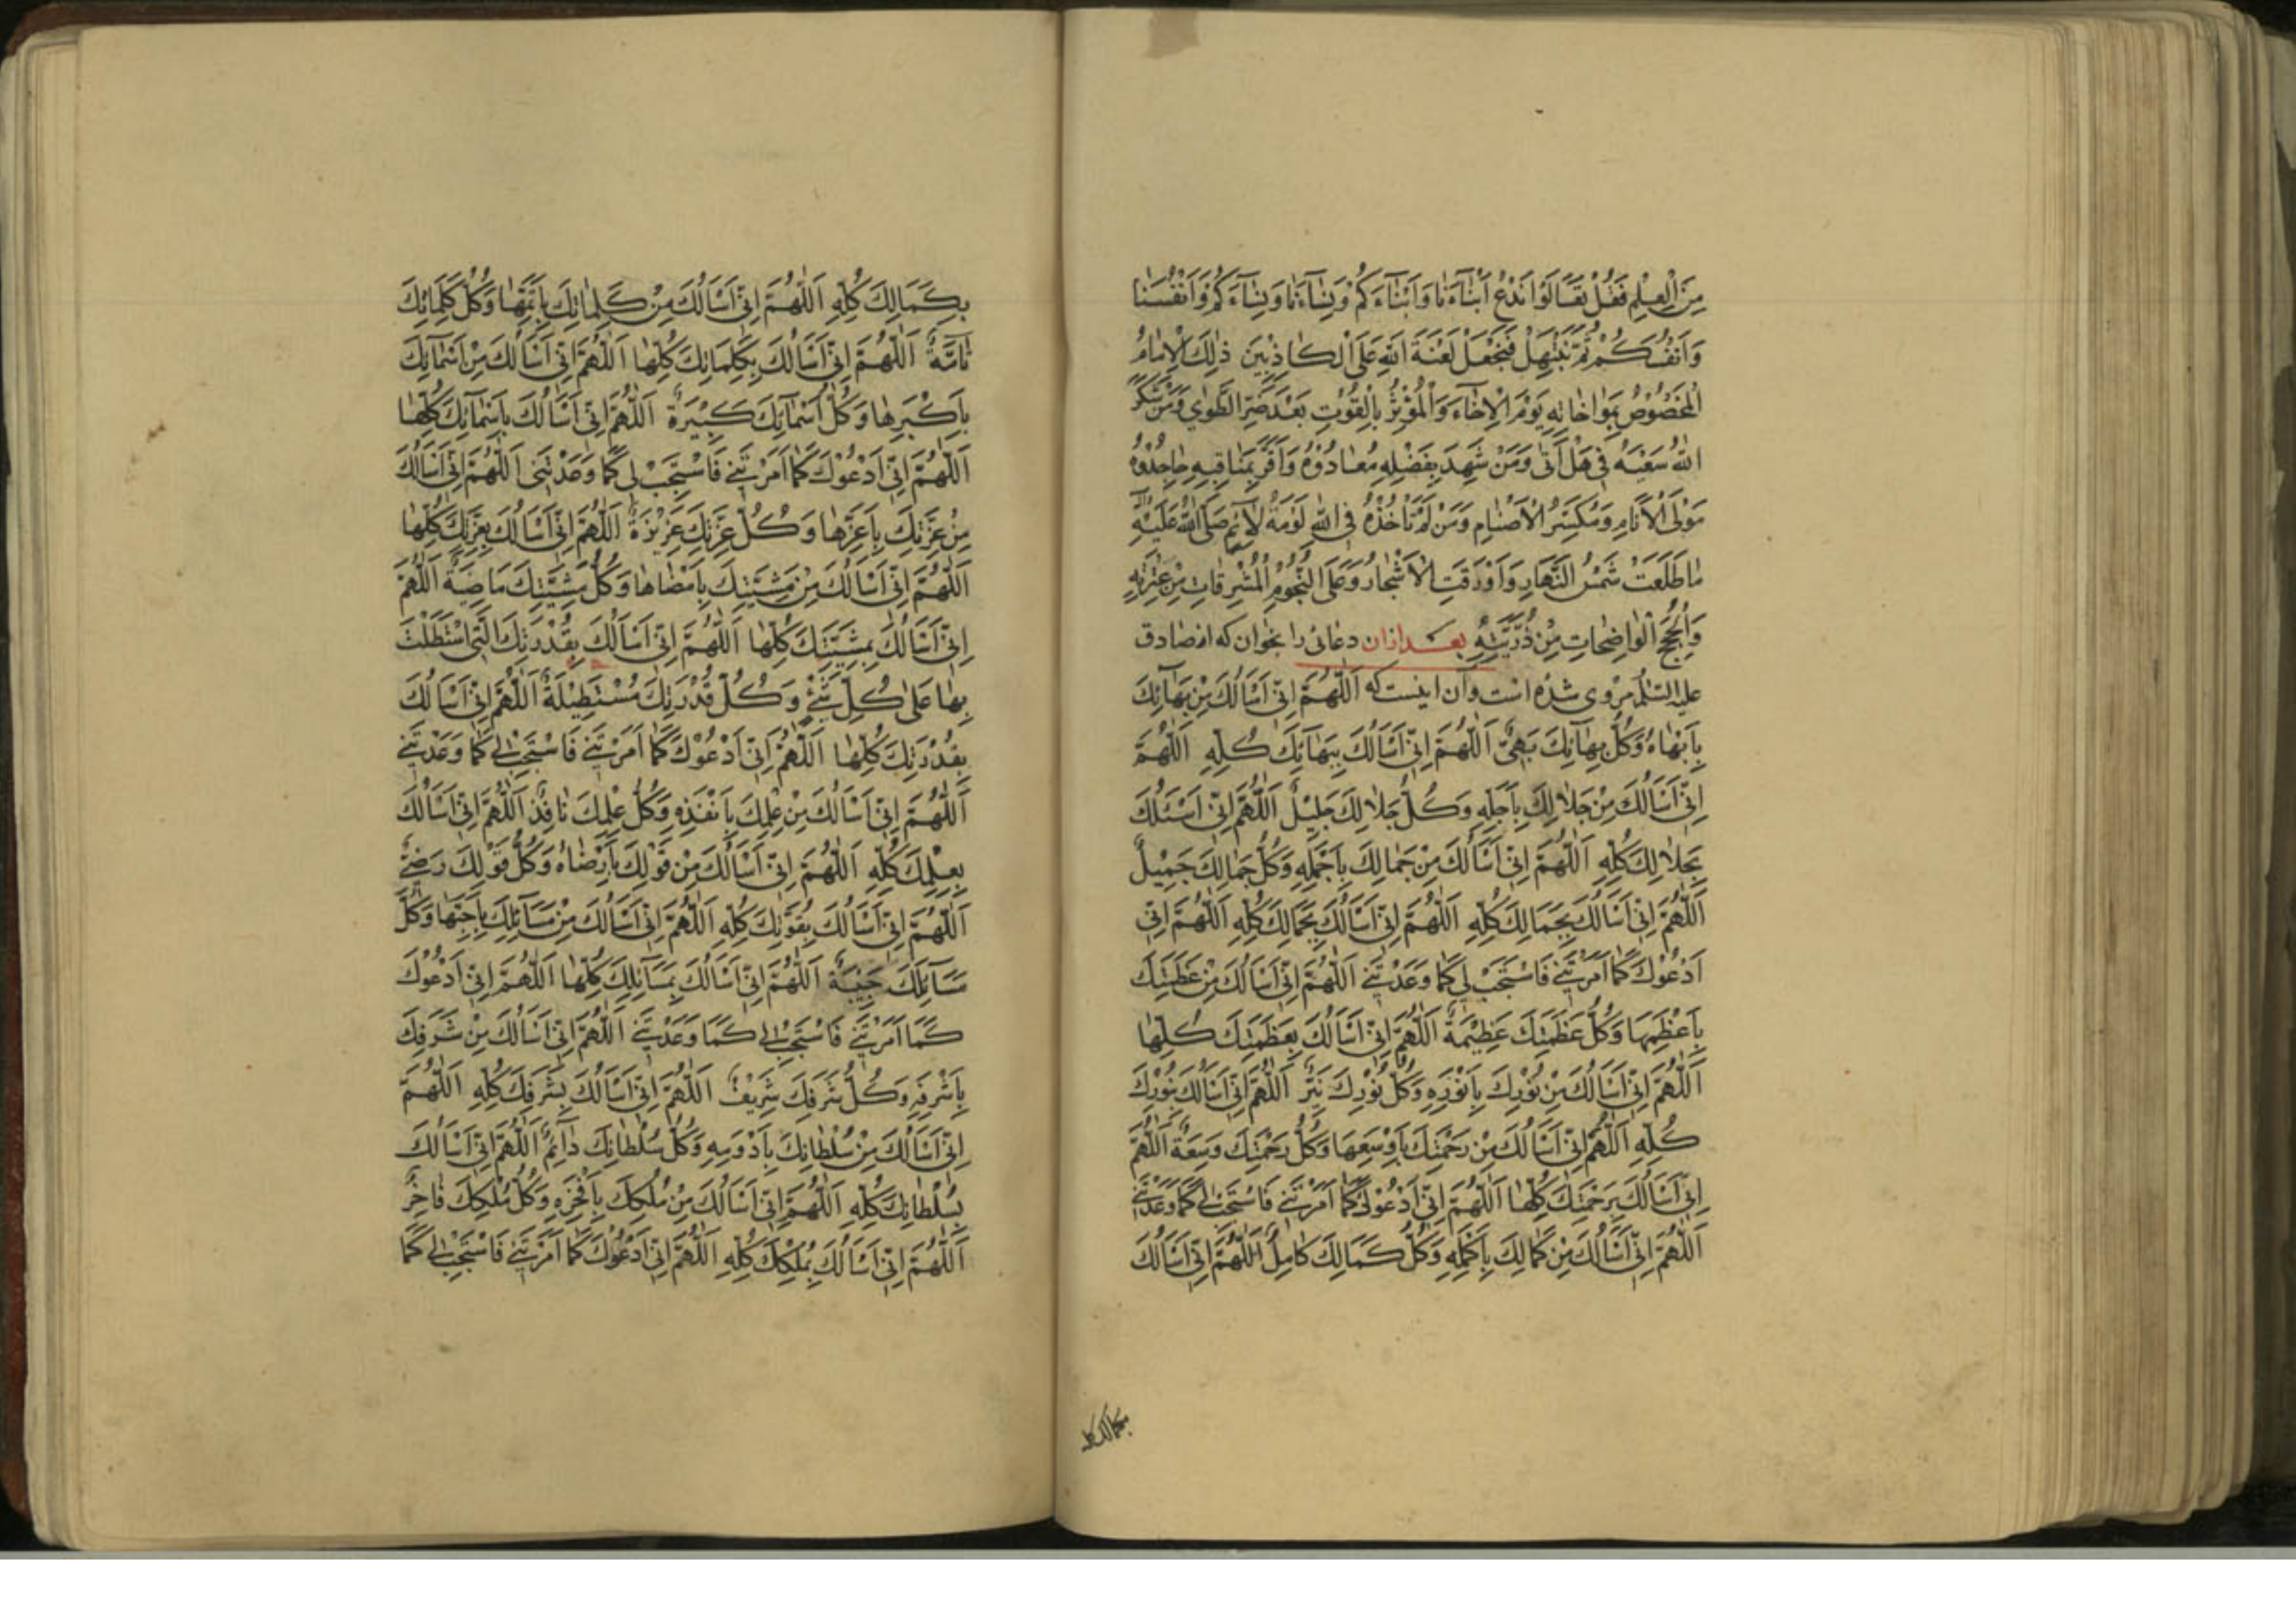 مِنَ الْعِلْمِ فَقُلْ تَعَالَوْا نَدْعُ اَبْنَآءَنَا وَاَبْنَآءَكُمْ وَنِسَآءَنَا وَنِسَآءَكُمْ وَاَنْفُسَنَا
وَاَنْفُسَكُمْ ثُمَّ نَبْتَهِلْ فَنَجْعَلْ لَعْنَةَ اللهِ عَلَى الْكَاذِبِينَ ذٰلِكَ الْاِمَامُ
الْمَخْصُوصُ بِمَوَاخَاتِهِ يَوْمَ الْاِخَآءِ وَالْمُؤْثِرُ بِالْقُوتِ بَعْدَ ضُرِّ الطَّوٰى وَمَنْ شَكَرَ
اللهُ سَعْيَهُ فِي هَلْ اَتٰى وَمَنْ شَهِدَ بِفَضْلِهِ مُعَادُوْهُ وَاَقَرَّ بِمَنَاقِبِهِ جَاحِدُوْهُ
مَوْلَى الْاَنَامِ وَمُكَسِّرُ الْاَصْنَامِ وَمَنْ لَمْ تَأْخُذْهُ فِي اللهِ لَوْمَةُ لَآئِمٍ صَلَّى اللهُ عَلَيْهِ
مَا طَلَعَتْ شَمْسُ النَّهَارِ وَاَوْرَقَتِ الْاَشْجَارُ وَعَلَى النُّجُومِ الْمُشْرِقَاتِ مِنْ عِتْرَتِهِ
وَالْحُجَجِ الْوَاضِحَاتِ مِنْ ذُرِّيَّتِهِ بعد ازان دعائى را بخوان كه از صادق
عليه السلام مروى شده است وآن اينست كه اَللّٰهُمَّ اِنِّي اَسْاَلُكَ مِنْ بَهَآئِكَ
بِاَبْهَاهُ وَكُلُّ بَهَآئِكَ بَهِيٌّ اَللّٰهُمَّ اِنِّي اَسْاَلُكَ بِبَهَآئِكَ كُلِّهِ اَللّٰهُمَّ
اِنِّي اَسْاَلُكَ مِنْ جَلَالِكَ بِاَجَلِّهِ وَكُلُّ جَلَالِكَ جَلِيْلٌ اَللّٰهُمَّ اِنِّي اَسْئَلُكَ
بِجَلَالِكَ كُلِّهِ اَللّٰهُمَّ اِنِّي اَسْاَلُكَ مِنْ جَمَالِكَ بِاَجْمَلِهِ وَكُلُّ جَمَالِكَ جَمِيْلٌ
اَللّٰهُمَّ اِنِّي اَسْاَلُكَ بِجَمَالِكَ كُلِّهِ اَللّٰهُمَّ اِنِّي اَسْاَلُكَ بِجَمَالِكَ كُلِّهِ اَللّٰهُمَّ اِنِّي
اَدْعُوْكَ كَمَا اَمَرْتَنِي فَاسْتَجِبْ لِي كَمَا وَعَدْتَنِي اَللّٰهُمَّ اِنِّي اَسْاَلُكَ مِنْ عَظَمَتِكَ
بِاَعْظَمِهَا وَكُلُّ عَظَمَتِكَ عَظِيْمَةٌ اَللّٰهُمَّ اِنِّي اَسْاَلُكَ بِعَظَمَتِكَ كُلِّهَا
اَللّٰهُمَّ اِنِّي اَسْاَلُكَ مِنْ نُوْرِكَ بِاَنْوَرِهِ وَكُلُّ نُوْرِكَ نَيِّرٌ اَللّٰهُمَّ اِنِّي اَسْاَلُكَ بِنُوْرِكَ
كُلِّهِ اَللّٰهُمَّ اِنِّي اَسْاَلُكَ مِنْ رَحْمَتِكَ بِاَوْسَعِهَا وَكُلُّ رَحْمَتِكَ وَسِعَةٌ اَللّٰهُمَّ
اِنِّي اَسْاَلُكَ بِرَحْمَتِكَ كُلِّهَا اَللّٰهُمَّ اِنِّي اَدْعُوْكَ كَمَا اَمَرْتَنِي فَاسْتَجِبْ لِي كَمَا وَعَدْتَنِي
اَللّٰهُمَّ اِنِّي اَسْاَلُكَ مِنْ كَمَالِكَ بِاَكْمَلِهِ وَكُلُّ كَمَالِكَ كَامِلٌ اَللّٰهُمَّ اِنِّي اَسْاَلُكَ
بكمالك كله
بِكَمَالِكَ كُلِّهِ اَللّٰهُمَّ اِنِّي اَسْاَلُكَ مِنْ كَلِمَاتِكَ بِاَتَمِّهَا وَكُلُّ كَلِمَاتِكَ
تَآمَّةٌ اَللّٰهُمَّ اِنِّي اَسْاَلُكَ بِكَلِمَاتِكَ كُلِّهَا اَللّٰهُمَّ اِنِّي اَسْاَلُكَ مِنْ اَسْمَآئِكَ
بِاَكْبَرِهَا وَكُلُّ اَسْمَآئِكَ كَبِيْرَةٌ اَللّٰهُمَّ اِنِّي اَسْاَلُكَ بِاَسْمَآئِكَ كُلِّهَا
اَللّٰهُمَّ اِنِّي اَدْعُوْكَ كَمَا اَمَرْتَنِي فَاسْتَجِبْ لِي كَمَا وَعَدْتَنِي اَللّٰهُمَّ اِنِّي اَسْاَلُكَ
مِنْ عِزَّتِكَ بِاَعَزِّهَا وَكُلُّ عِزَّتِكَ عَزِيْزَةٌ اَللّٰهُمَّ اِنِّي اَسْاَلُكَ بِعِزَّتِكَ كُلِّهَا
اَللّٰهُمَّ اِنِّي اَسْاَلُكَ مِنْ مَشِيَّتِكَ بِاَمْضَاهَا وَكُلُّ مَشِيَّتِكَ مَاضِيَةٌ اَللّٰهُمَّ
اِنِّي اَسْاَلُكَ بِمَشِيَّتِكَ كُلِّهَا اَللّٰهُمَّ اِنِّي اَسْاَلُكَ بِقُدْرَتِكَ الَّتِي اسْتَطَلْتَ
بِهَا عَلٰى كُلِّ شَيْءٍ وَكُلُّ قُدْرَتِكَ مُسْتَطِيْلَةٌ اَللّٰهُمَّ اِنِّي اَسْاَلُكَ
بِقُدْرَتِكَ كُلِّهَا اَللّٰهُمَّ اِنِّي اَدْعُوْكَ كَمَا اَمَرْتَنِي فَاسْتَجِبْ لِي كَمَا وَعَدْتَنِي
اَللّٰهُمَّ اِنِّي اَسْاَلُكَ مِنْ عِلْمِكَ بِاَنْفَذِهِ وَكُلُّ عِلْمِكَ نَافِذٌ اَللّٰهُمَّ اِنِّي اَسْاَلُكَ
بِعِلْمِكَ كُلِّهِ اَللّٰهُمَّ اِنِّي اَسْاَلُكَ مِنْ قَوْلِكَ بِاَرْضَاهُ وَكُلُّ قَوْلِكَ رَضِيٌّ
اَللّٰهُمَّ اِنِّي اَسْاَلُكَ بِقَوْلِكَ كُلِّهِ اَللّٰهُمَّ اِنِّي اَسْاَلُكَ مِنْ مَسَآئِلِكَ بِاَحَبِّهَا وَكُلُّ
مَسَآئِلِكَ حَبِيْبَةٌ اَللّٰهُمَّ اِنِّي اَسْاَلُكَ بِمَسَآئِلِكَ كُلِّهَا اَللّٰهُمَّ اِنِّي اَدْعُوْكَ
كَمَا اَمَرْتَنِي فَاسْتَجِبْ لِي كَمَا وَعَدْتَنِي اَللّٰهُمَّ اِنِّي اَسْاَلُكَ مِنْ شَرَفِكَ
بِاَشْرَفِهِ وَكُلُّ شَرَفِكَ شَرِيْفٌ اَللّٰهُمَّ اِنِّي اَسْاَلُكَ بِشَرَفِكَ كُلِّهِ اَللّٰهُمَّ
اِنِّي اَسْاَلُكَ مِنْ سُلْطَانِكَ بِاَدْوَمِهِ وَكُلُّ سُلْطَانِكَ دَآئِمٌ اَللّٰهُمَّ اِنِّي اَسْاَلُكَ
بِسُلْطَانِكَ كُلِّهِ اَللّٰهُمَّ اِنِّي اَسْاَلُكَ مِنْ مُلْكِكَ بِاَفْخَرِهِ وَكُلُّ مُلْكِكَ فَاخِرٌ
اَللّٰهُمَّ اِنِّي اَسْاَلُكَ بِمُلْكِكَ كُلِّهِ اَللّٰهُمَّ اِنِّي اَدْعُوْكَ كَمَا اَمَرْتَنِي فَاسْتَجِبْ لِي كَمَا